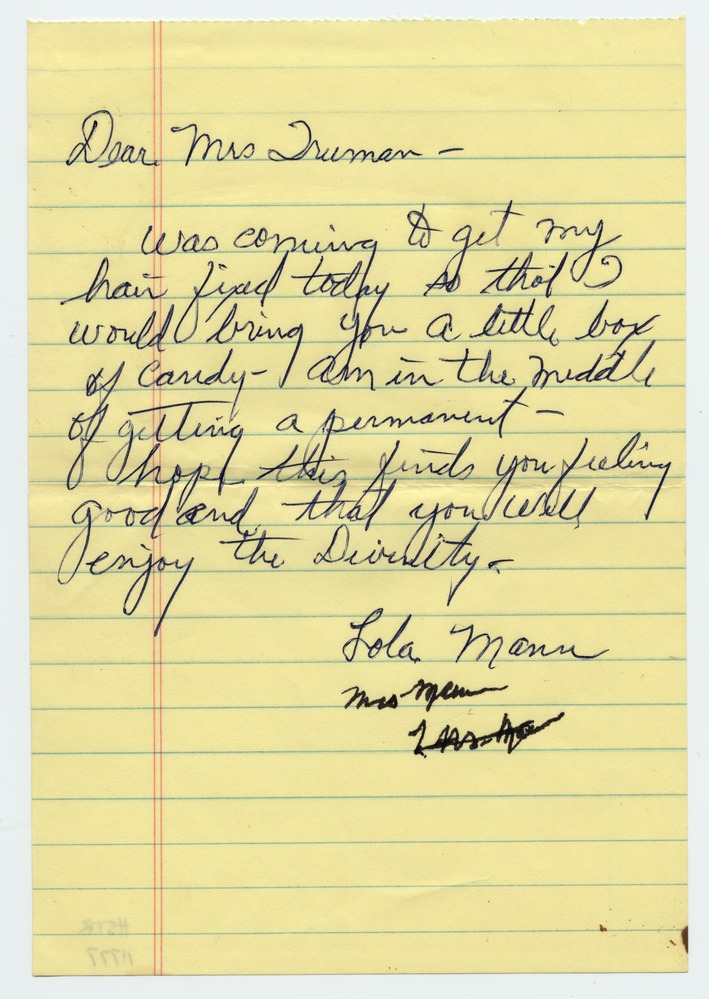 Dear Mrs Truman –
was coming to get my
hair fixed today so thot I
would bring you a little box
of candy – am in the middle
of getting a permanent –
hope this finds you feeling
good and that you will
enjoy the Divinity –
Lola Mann
Mrs Mann